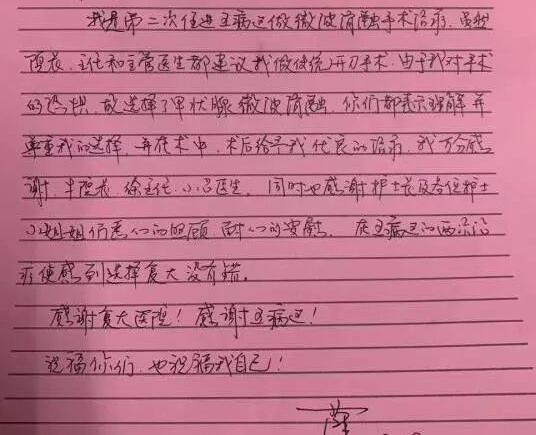 我是第二次住进五病区做微波消融手术治疗,虽然
院长、主任和主管医生都建议我做传统开刀手术,由于我对手术
的恐惧,故选择了甲状腺微波消融,你们都表示理解并
尊重我的选择,并在术中、术后给予我优良的治疗,我万分感
谢牛院长、徐主任、小吕医生,同时也感谢护士长及各位护士
小姐姐们悉心的照顾,耐心的安慰,在五病区的两次治
疗使感到选择复大没有错。
感谢复大医院!感谢五病区!
祝福你们,也祝福我自己!